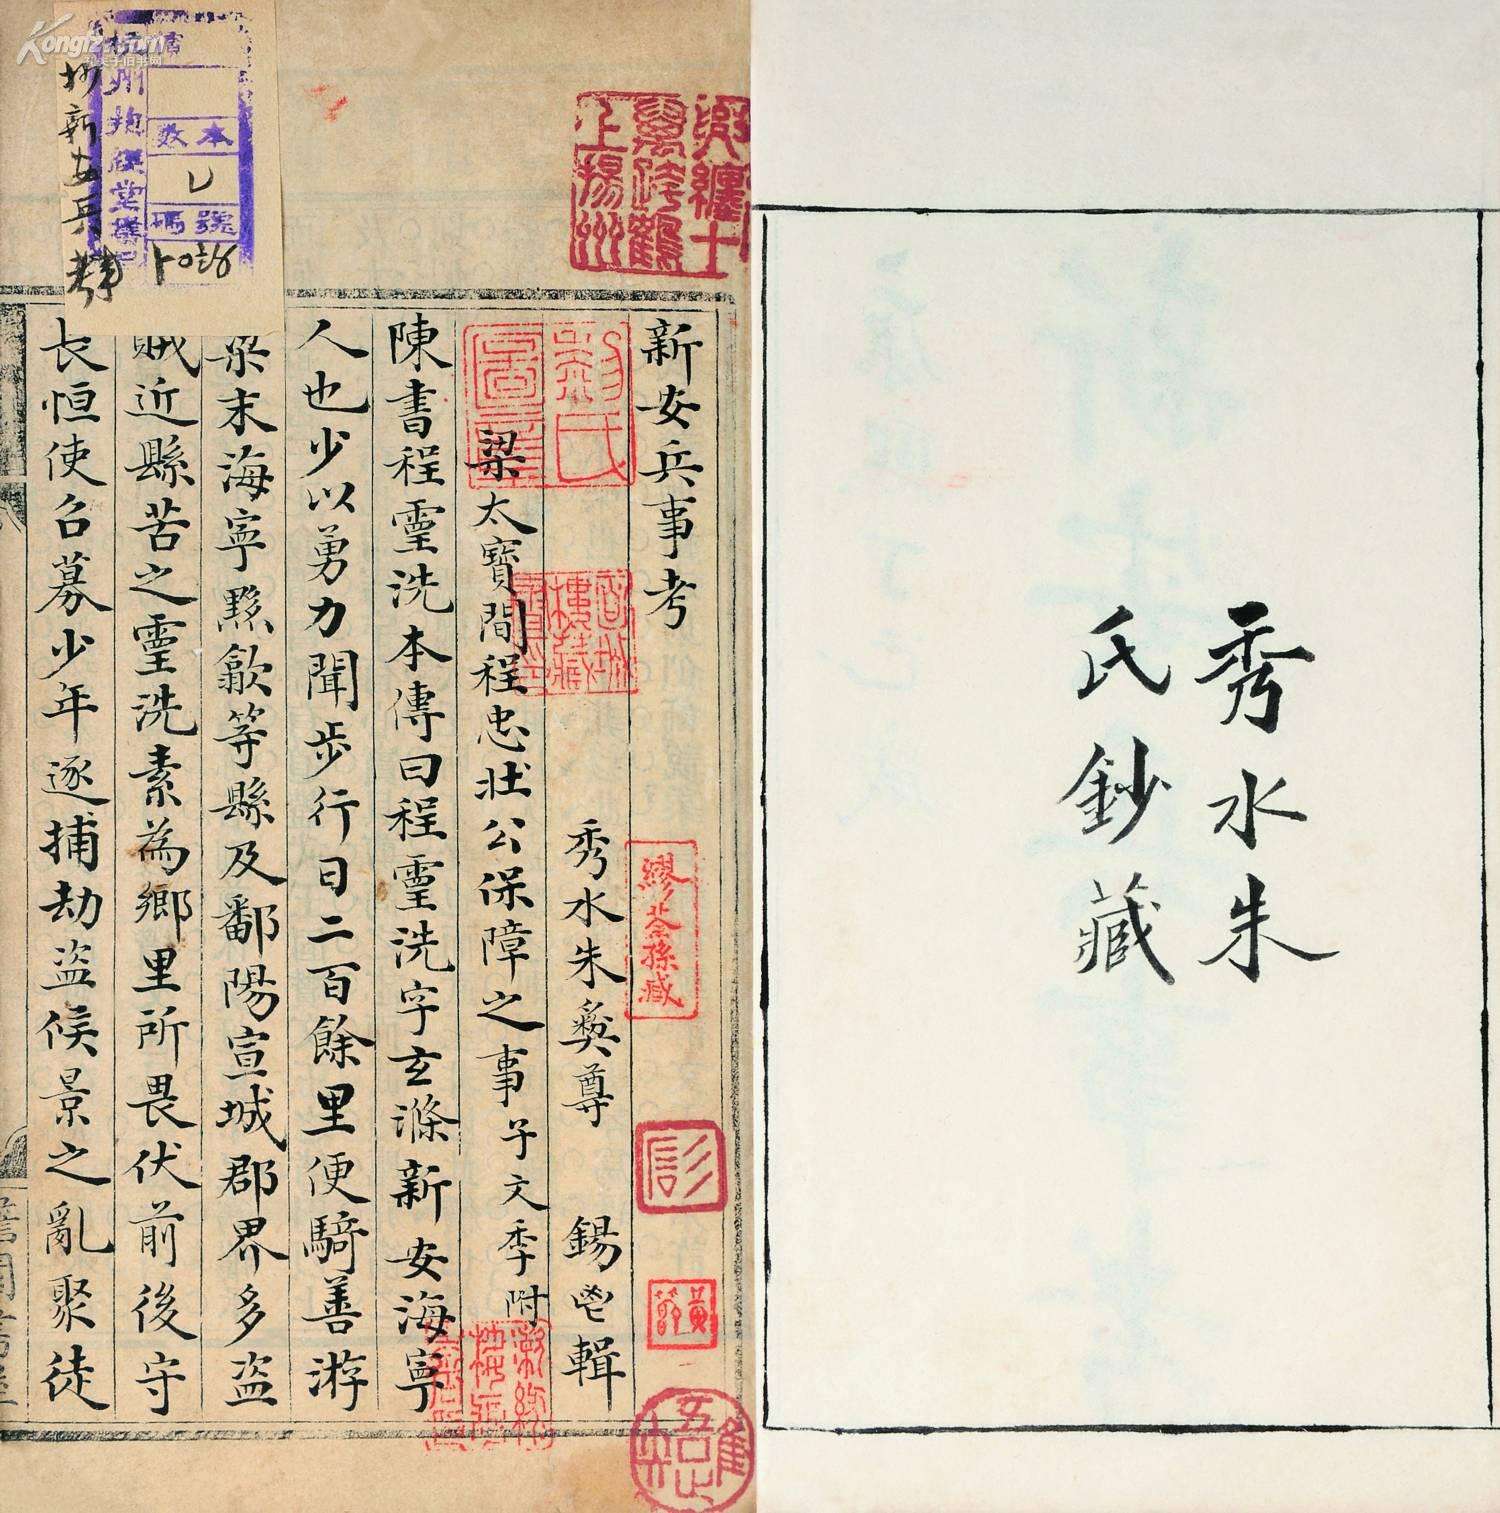 秀水朱
氏鈔藏
新安兵事考
秀水朱彝尊 錫鬯輯
梁太寶間程忠壯公保障之事子文季附
陳書程靈洗本傳曰程靈洗字玄滌新安海寧
人也少以勇力聞步行日二百餘里便騎善游
梁末海寧黟歙等縣及鄱陽宣城郡界多盜
賊近縣苦之靈洗素為鄉里所畏伏前後守
長恒使召募少年逐捕劫盜候景之亂聚徒
繆荃孫藏
抄新安兵事考
杭州抱經堂
本數
號碼
Kongfz.com
孔夫子旧书网